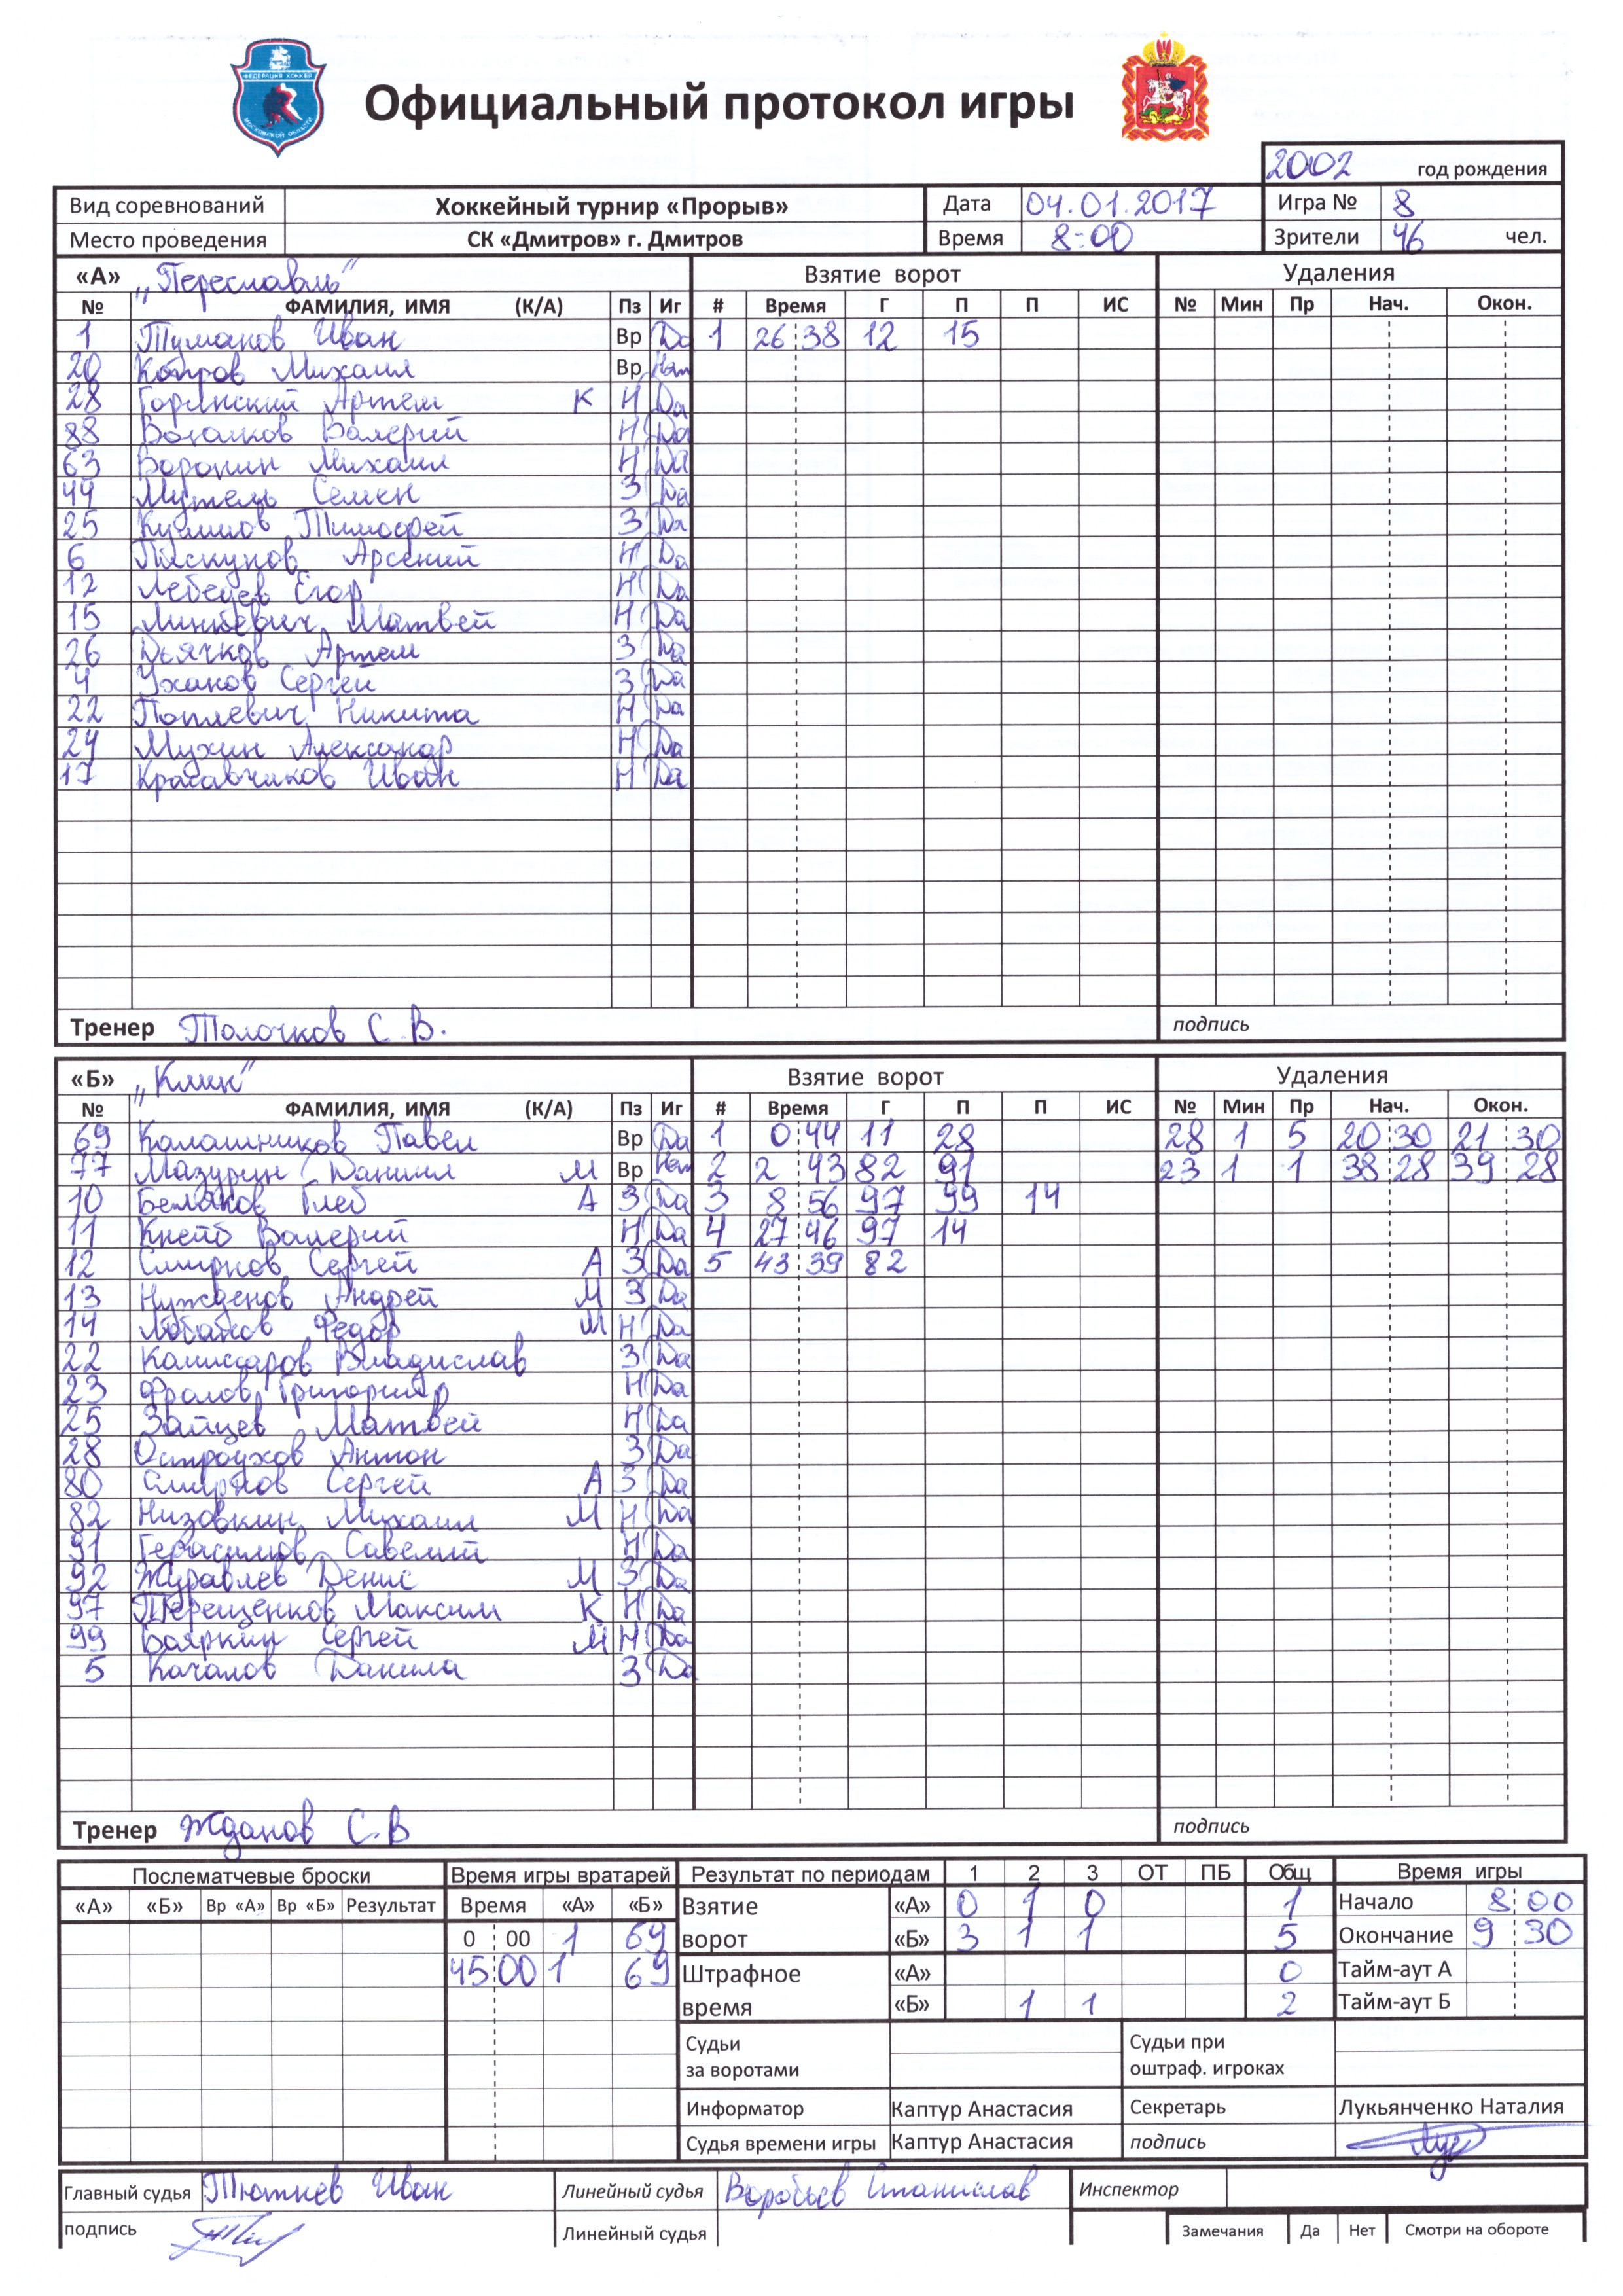 ФЕДЕРАЦИЯ ХОККЕЯ
МОСКОВСКОЙ ОБЛАСТИ
Официальный протокол игры
2002 год рождения
Вид соревнований Хоккейный турнир «Прорыв» Дата 04.01.2017 Игра № 8
Место проведения СК «Дмитров» г. Дмитров Время 8:00 Зрители 46 чел.
«А» „Переславль" Взятие ворот Удаления
№ ФАМИЛИЯ, ИМЯ (К/А) Пз Иг # Время Г П П ИС № Мин Пр Нач. Окон.
1 Туманов Иван Вр Да 1 26 38 12 15
20 Михаил Вр Нет
28 Артем К Н Да
88 Валерий Н Да
63 Воронин Михаил Н Да
44 Мутель Семен З Да
25 Тимофей З Да
6 Пискунов Арсений Н Да
12 Лебедев Егор Н Да
15 Минкевич Матвей Н Да
26 Дьячков Артем З Да
4 Уханов Сергей З Да
22 Поплевич Никита Н Да
24 Мухин Александр Н Да
17 Красавчиков Иван Н Да
Тренер Толочков С.В. подпись
«Б» „Клин" Взятие ворот Удаления
№ ФАМИЛИЯ, ИМЯ (К/А) Пз Иг # Время Г П П ИС № Мин Пр Нач. Окон.
69 Калашников Павел Вр Да 1 0 44 11 28 28 1 5 20 30 21 30
77 Мазурин Даниил М Вр Нет 2 2 43 82 91 23 1 1 38 28 39 28
10 Беляков Глеб А З Да 3 8 56 97 99 14
11 Валерий Н Да 4 27 46 97 14
12 Смирнов Сергей А З Да 5 43 39 82
13 Нужденов Андрей М З Да
14 Лобанов Федор М Н Да
22 Комиссаров Владислав З Да
23 Фролов Н Да
25 Зайцев Матвей Н Да
28 Остроухов Антон З Да
80 Смирнов Сергей А З Да
82 Низовкин Михаил М Н Да
91 Герасимов Савелий Н Да
92 Журавлев Денис М З Да
97 Терещенков Максим К Н Да
99 Бояркин Сергей М Н Да
5 Качалов Данила З Да
Тренер Жданов С.В подпись
Послематчевые броски Время игры вратарей Результат по периодам 1 2 3 ОТ ПБ Общ Время игры
«А» «Б» Вр «А» Вр «Б» Результат Время «А» «Б» Взятие ворот «А» 0 1 0 1 Начало 8 00
0 00 1 69 «Б» 3 1 1 5 Окончание 9 30
45:00 1 69 Штрафное время «А» 0 Тайм-аут А
«Б» 1 1 2 Тайм-аут Б
Судьи за воротами Судьи при оштраф. игроках
Информатор Каптур Анастасия Секретарь Лукьянченко Наталия
Судья времени игры Каптур Анастасия подпись
Главный судья Тютнев Иван Линейный судья Воробьев Станислав Инспектор
подпись Линейный судья Замечания Да Нет Смотри на обороте